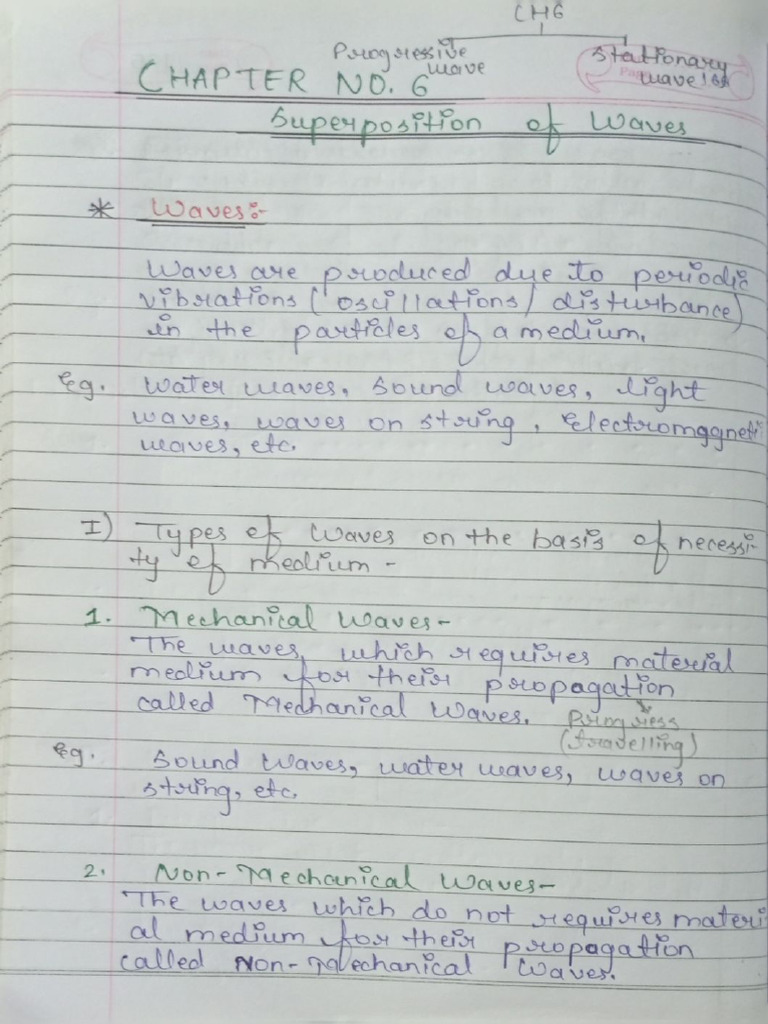 CH6
Progressive wave
Stationary waves
CHAPTER NO. 6
Superposition of Waves
* Waves:-
Waves are produced due to periodic
vibrations (oscillations/disturbance)
in the particles of a medium.
Eg. Water waves, Sound waves, light
waves, waves on string, electromagneti
waves, etc.
I) Types of waves on the basis of necessi-
ty of medium -
1. Mechanical Waves-
The waves, which requires material
medium for their propagation
called Mechanical Waves.
Progress
(travelling)
Eg. Sound waves, water waves, waves on
string, etc.
2. Non-Mechanical Waves-
The waves which do not requires materi
al medium for their propagation
called Non-Mechanical Waves.